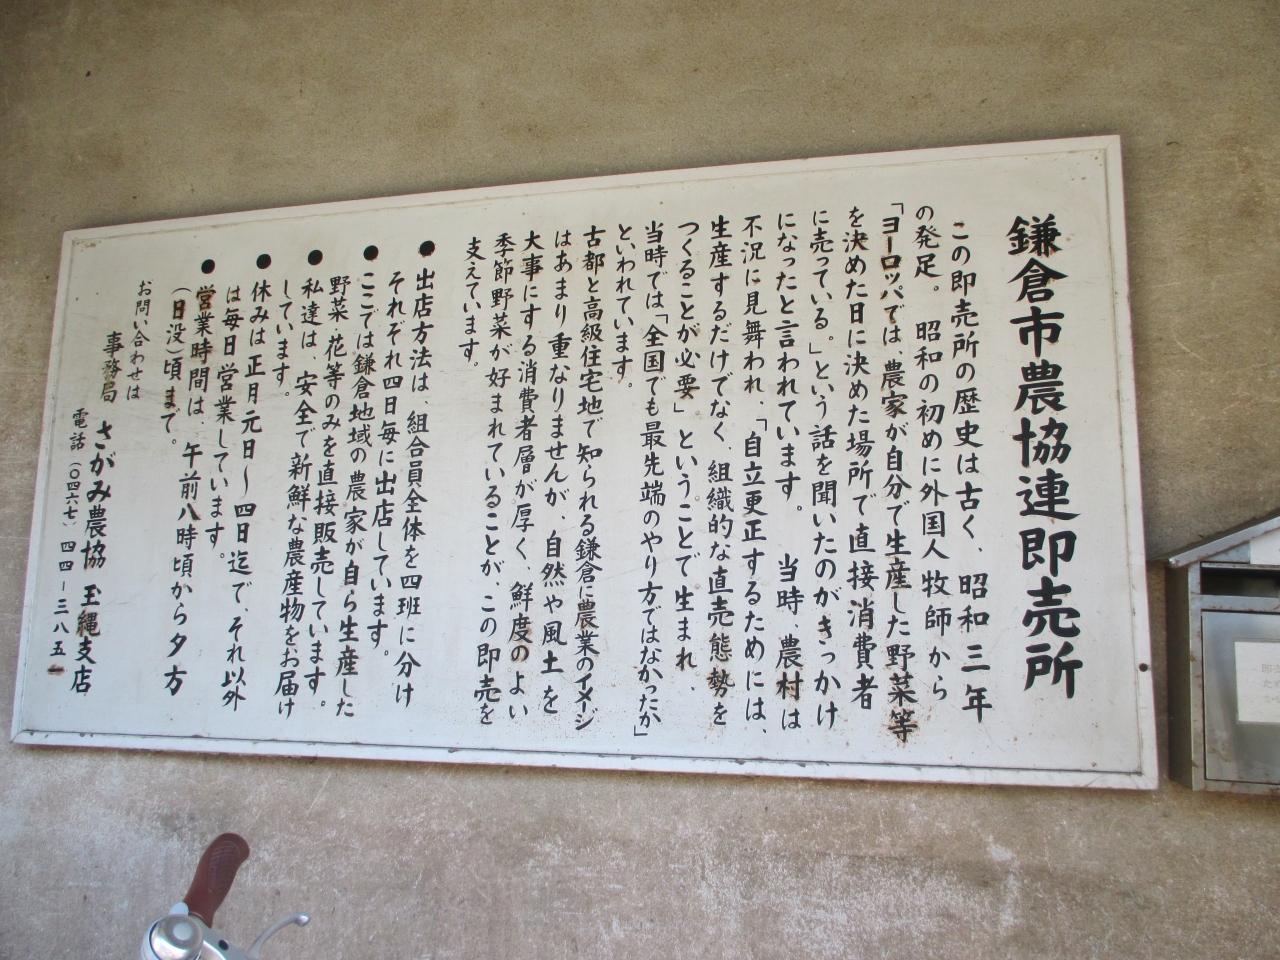 鎌倉市農協連即売所
この即売所の歴史は古く、昭和三年
の発足。 昭和の初めに外国人牧師から
「ヨーロッパでは、農家が自分で生産した野菜等
を決めた日に決めた場所で直接消費者
に売っている。」という話を聞いたのがきっかけ
になったと言われています。 当時、農村は
不況に見舞われ、「自立更正するためには、
生産するだけでなく、組織的な直売態勢を
つくることが必要」ということで生まれ、
当時では「全国でも最先端のやり方ではなかったか」
といわれています。
古都と高級住宅地で知られる鎌倉に農業のイメージ
はあまり重なりませんが、自然や風土を
大事にする消費者層が厚く、鮮度のよい
季節野菜が好まれていることが、この即売を
支えています。
●出店方法は、組合員全体を四班に分け
それぞれ四日毎に出店しています。
●ここでは鎌倉地域の農家が自ら生産した
野菜・花等のみを直接販売しています。
●私達は、安全で新鮮な農産物をお届け
しています。
●休みは正月元日〜四日迄で、それ以外
は毎日営業しています。
●営業時間は、午前八時頃から夕方
(日没)頃まで。
お問い合わせは
事務局 さがみ農協 玉縄支店
電話(〇四六七)四四-三八五一